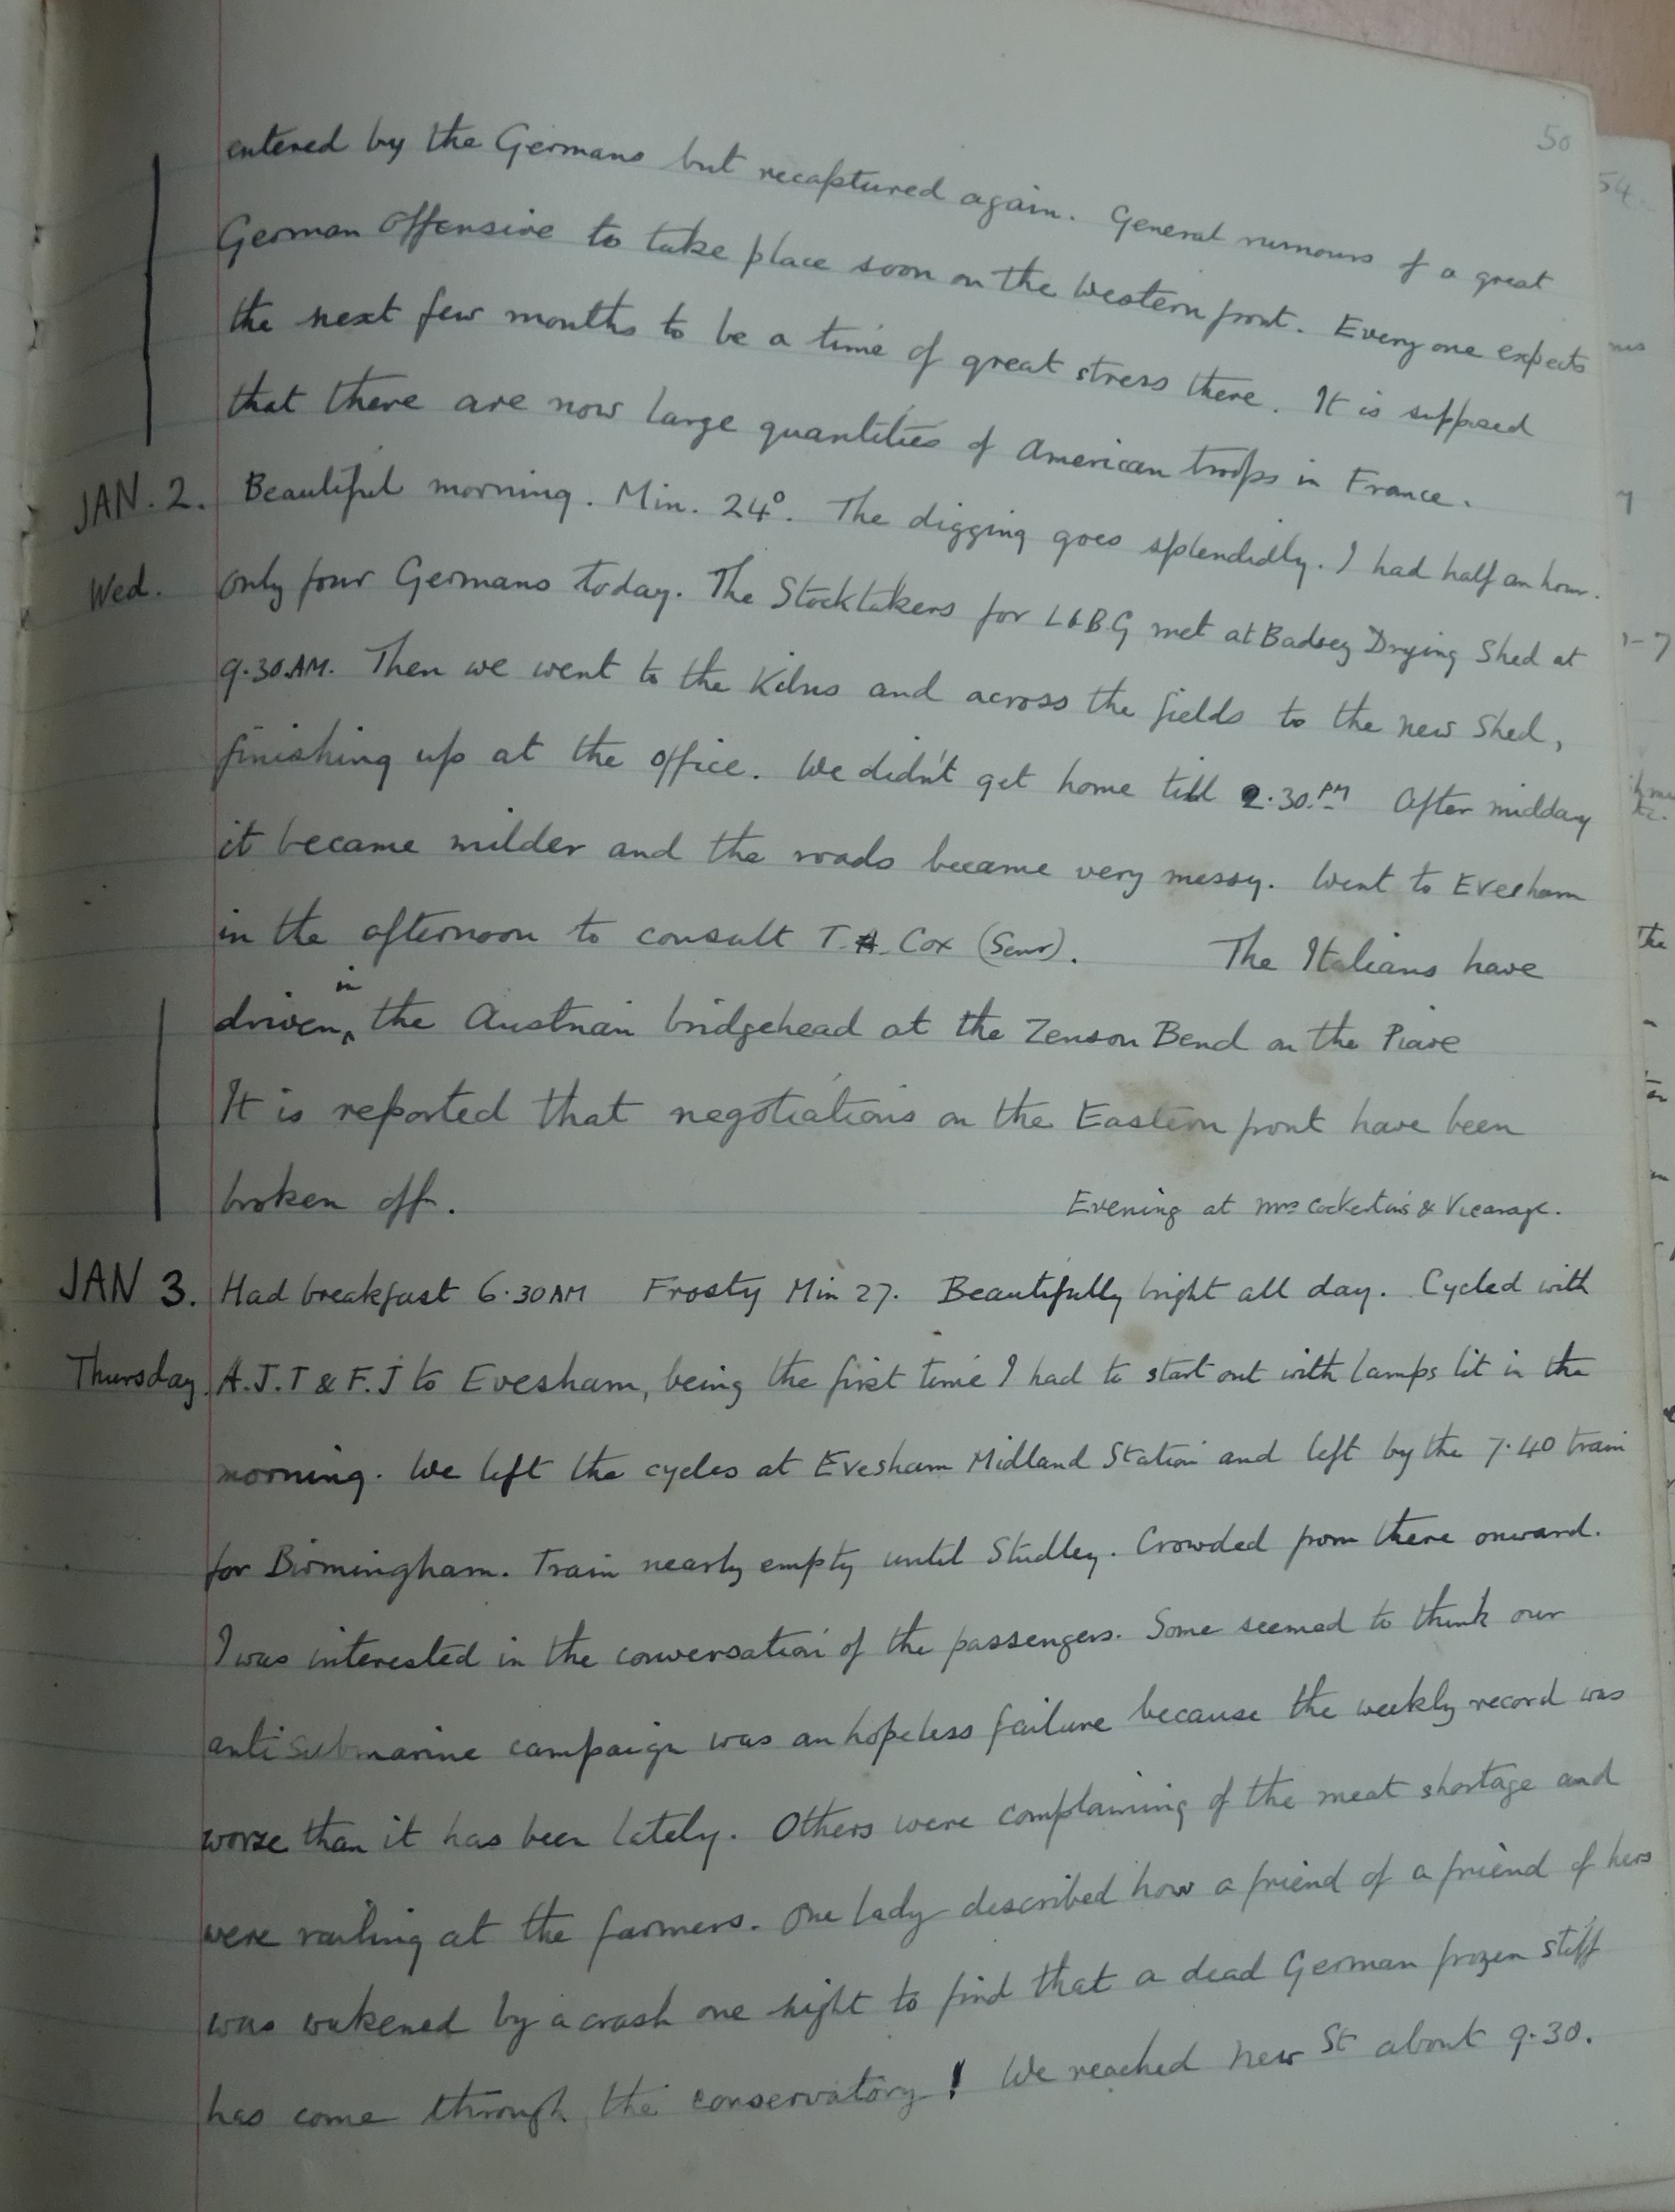 50
entered by the Germans but recaptured again. General rumours of a great
German Offensive to take place soon on the Western front. Everyone expects
the next few months to be a time of great stress there. It is supposed
that there are now large quantities of American troops in France.
JAN. 2. Beautiful morning. Min. 24°. The digging goes splendidly. I had half an hour.
Wed. Only four Germans today. The Stocktakers for L&BG met at Badsey Drying Shed at
9.30.AM. Then we went to the Kilns and across the fields to the new Shed,
finishing up at the office. We didn't get home till 2.30.PM After midday
it became milder and the roads became very messy. Went to Evesham
in the afternoon to consult T. A. Cox (Senr). The Italians have
driven in the Austrian bridgehead at the Zenson Bend on the Piave
It is reported that negotiations on the Eastern front have been
broken off. Evening at Mrs Cockerton's & Vicarage.
JAN 3. Had breakfast 6.30AM Frosty Min 27. Beautifully bright all day. Cycled with
Thursday. A.J.T & F.J to Evesham, being the first time I had to start out with lamps lit in the
morning. We left the cycles at Evesham Midland Station and left by the 7.40 train
for Birmingham. Train nearly empty until Studley. Crowded from there onward.
I was interested in the conversation of the passengers. Some seemed to think our
anti submarine campaign was an hopeless failure because the weekly record was
worse than it has been lately. Others were complaining of the meat shortage and
were railing at the farmers. One lady described how a friend of a friend of hers
was wakened by a crash one night to find that a dead German frozen stiff
has come through the conservatory! We reached New St about 9.30.
54